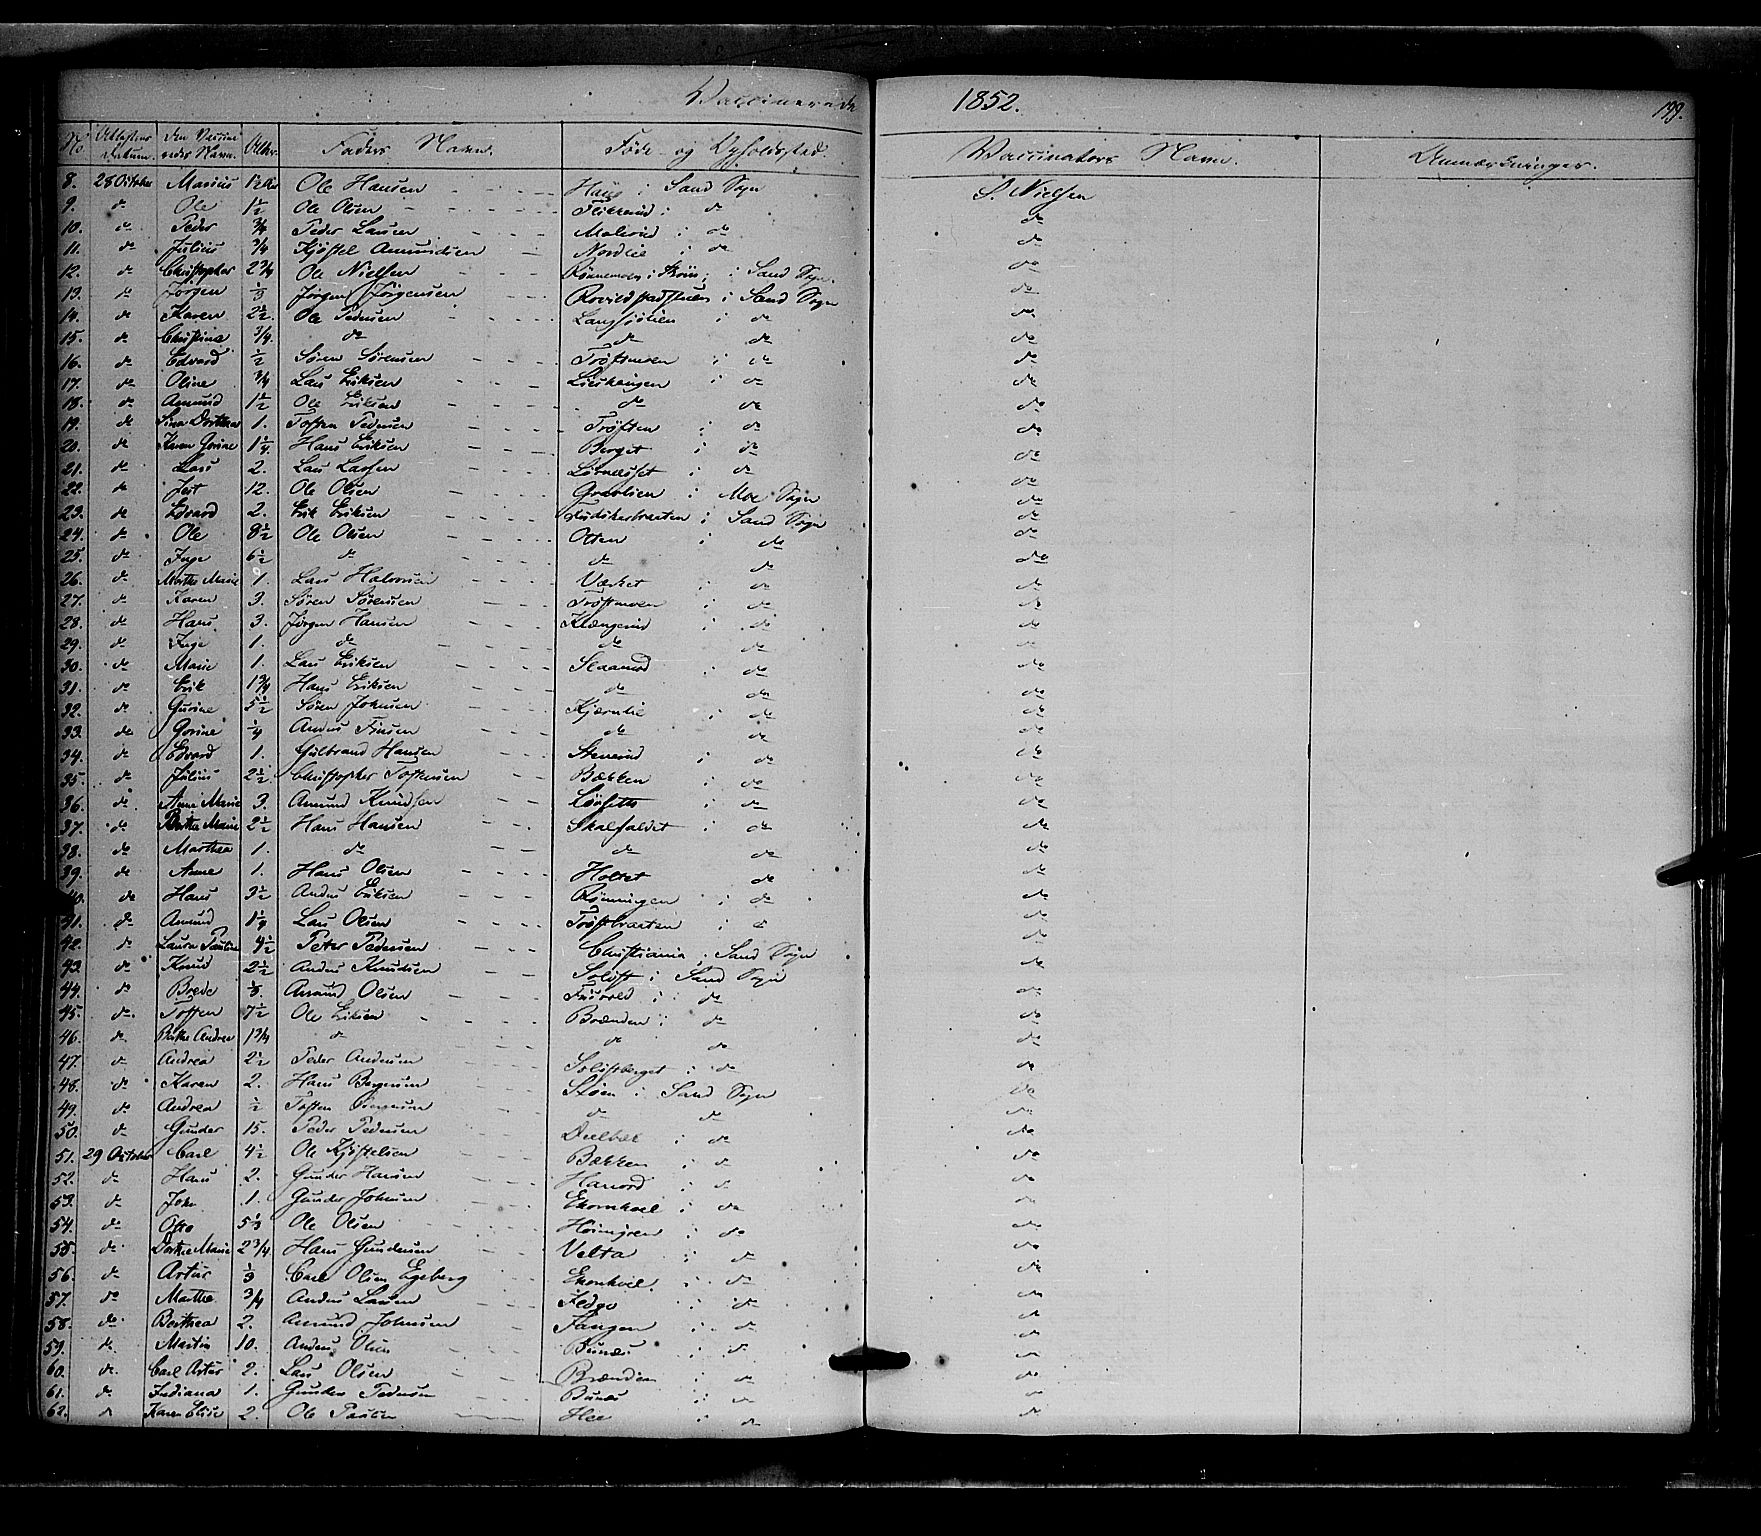 Vaccinerede 1852. 199.
No Attestens Datum. Den Vaccineredes Navn. Alder. Faders Navn. Føde- og Opholdssted. Vaccinators Navn. Anmærkninger.
8. 28 October Marius 1½ Aar Ole Hansen Haug i Sand Sogn S. Nielsen
9. do Ole 1½ Ole Olsen i do do
10. do Peder ¾ Peder Larsen Malerud i do do
11. do Julius ¾ Kjøstel Amundsen Nordlie i do do
12. do Christopher 2¾ Ole Nielsen i Sand Sogn do
13. do Jørgen ⅓ Jørgen Jørgensen i Sand Sogn do
14. do Karen 2½ Ole Pedersen Langsjølien i do do
15. do Christina ¾ do do do do
16. do Edvard ½ Søren Sørensen Trøftmoen i do do
17. do Oline ¾ Lars Eriksen i do do
18. do Amund 1½ Ole Eriksen do do do
19. do Sina Dorthea 1. Tosten Pedersen Trøften i do do
20. do Karen Gorine 1¼ Hans Eriksen Berget i do do
21. do Lars 2. Lars Larsen i do do
22. do 12. Ole Olsen Gravlien i Moe Sogn do
23. do Edvard 2. Erik Eriksen i Sand Sogn do
24. do Ole 8½ Ole Olsen do do
25. do Inge 6½ do do do do
26. do Marthe Marie 1. Lars Halvorsen Værket i do do
27. do Karen 3. Søren Sørensen Trøftmoen i do do
28. do Hans 3. Jørgen Hansen Klængerud i do do
29. do Inge 1. do do do do
30. do Marie 1. Lars Eriksen i do do
31. do Erik 1¾ Hans Eriksen do do do
32. do Gurine 5½ Søren Johnsen Kjærnlie i do do
33. do Gorine ¼ Anders Finsen do do do
34. do Edvard 1. Gulbrand Hansen Stenerud i do do
35. do Julius 2½ Christopher Tostensen Bækken i do do
36. do Anne Marie 3. Amund Knudsen i do do
37. do Berthe Marie 2½ Hans Hansen Skalfaldet i do do
38. do Marthea 1. do do do do
39. do Anne 1. Hans Olsen Holtet do do
40. do Hans 3½ Anders Eriksen Rønningen i do do
41. do Amund 1¼ Lars Olsen Trøftbraaten i do do
42. do Laura Pauline 4½ Peter Pedersen Christiania i Sand Sogn do
43. do Knud 2½ Anders Knudsen Soløst i Sand Sogn do
44. do Brede ⅓. Amund Olsen i do do
45. do Tosten 7½ Ole Eriksen Brænden i do do
46. do Berthe Andrea 1¾ do do do do
47. do Andrea 2½ Peder Andersen i do do
48. do Karen 2. Hans Borgersen Støen i Sand Sogn do
49. do Andrea ½ Tosten do do do
50. do Gunder 15. Peder Pedersen Deelbæk i do do
51. 29 October Carl 4½ Ole Kjøstelsen Bækken i do do
52. do Hans 2. Gunder Hansen i do do
53. do John 1. Gunder Johnsen Ekornhvil i do do
54. do Otto 5⅓ Ole Olsen i do do
55. do Dorthe Marie 2¾ Hans Gundersen Velta i do do
56. do Artur ⅓ Carl Olsen Egeberg Ekornhvil i do do
57. do Marthe ¾ Anders Larsen i do do
58. do Berthea 2. Amund Johnsen Tangen i do do
59. do Martin 10. Anders Olsen Bunæs i do do
60. do Carl Artur 2. Lars Olsen Brænden i do do
61. do Indiana 1. Gunder Pedersen Bunæs i do do
62. do Karen Elise 2. Ole Paulsen i do do